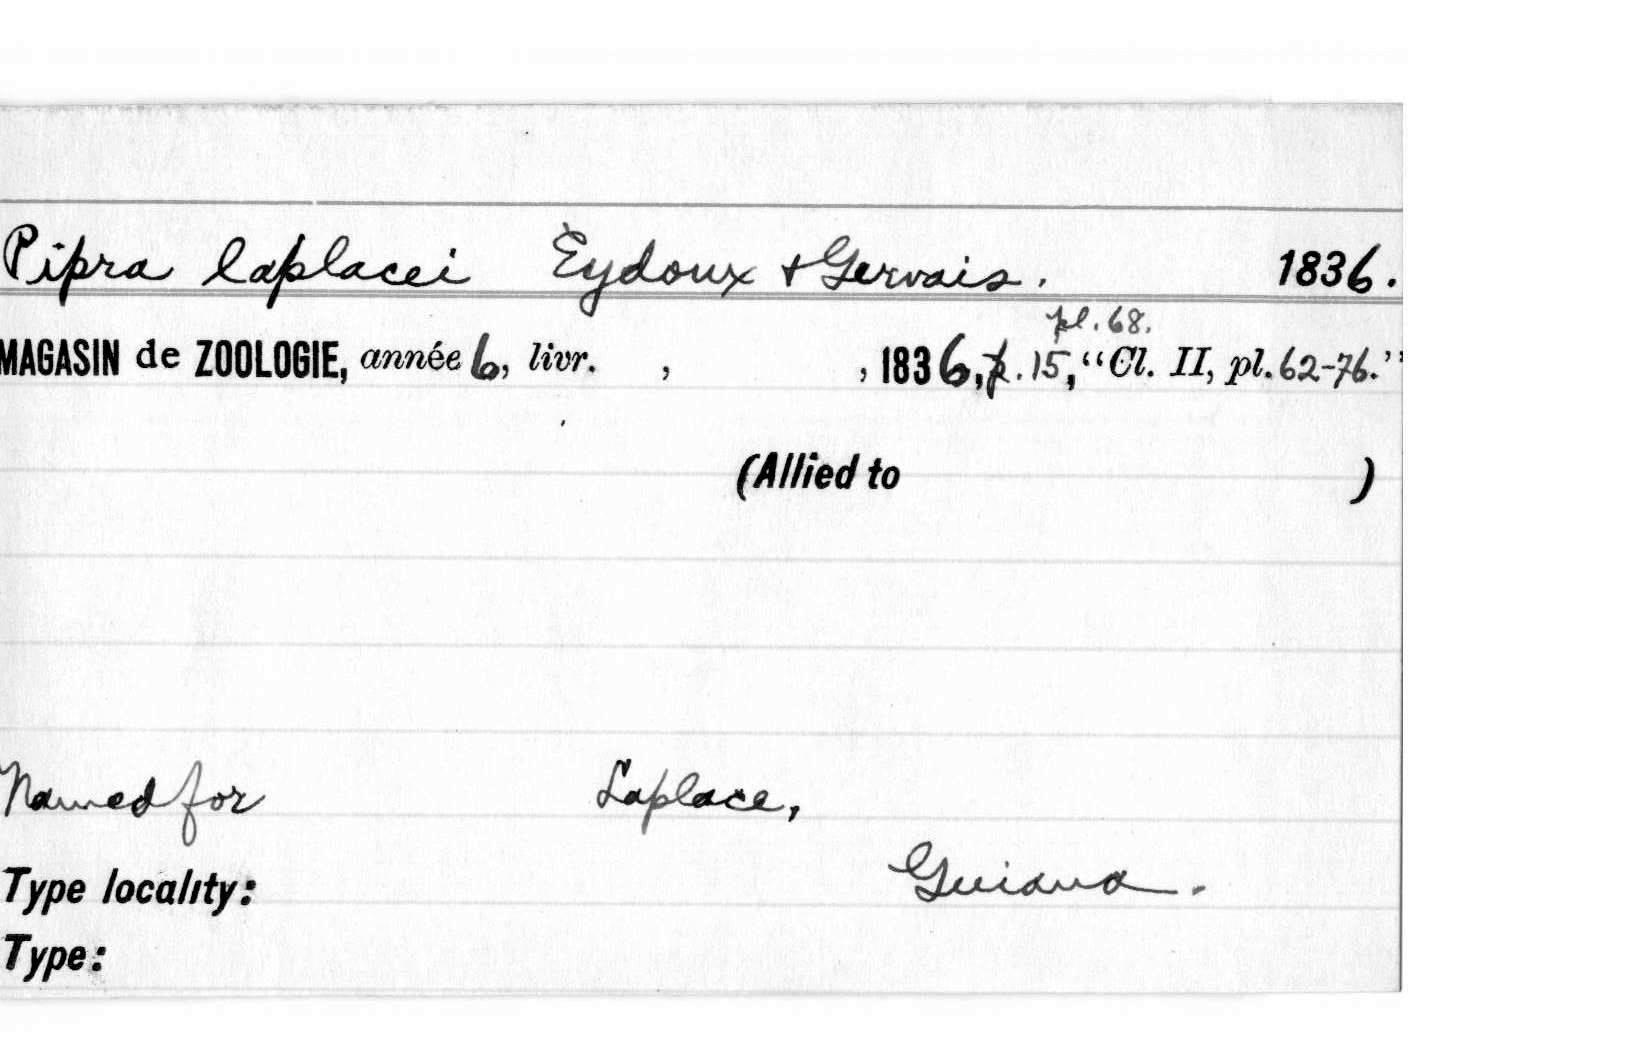 Pipra laplacei Eydoux & Gervais. 1836.
pl. 68.
MAGASIN de ZOOLOGIE, année 6, livr. , , 1836, p. 15, "Cl. II, pl. 62-76."
(Allied to )
Named for Laplace,
Guiana.
Type locality:
Type: